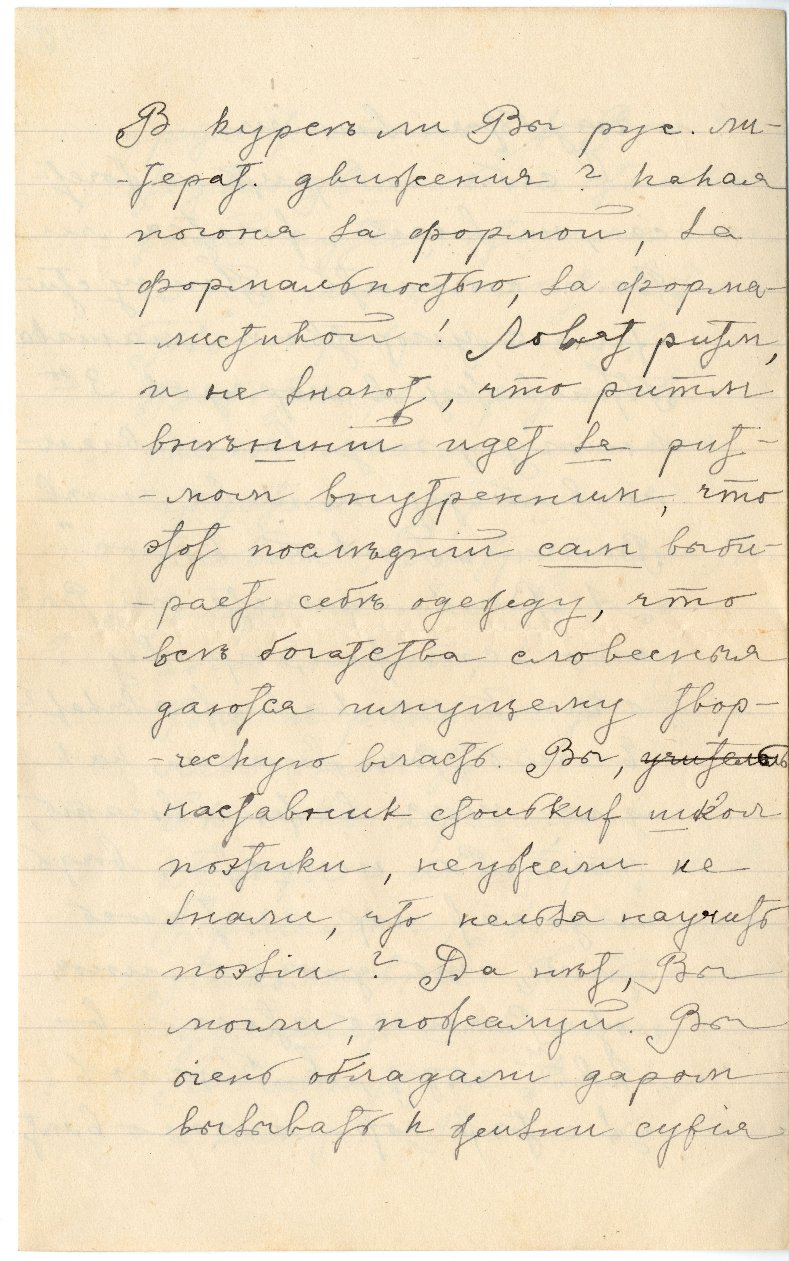 В курсѣ ли Вы рус. ли-
-терат. движения? Какая
погоня за формой, за
формальностью, за форма-
-листикой! Ловят ритм,
и не знают, что ритм
внѣшний идет за рит-
-мом внутренним, что
этот послѣдний сам выби-
-рает себѣ одежду, что
всѣ богатства словесныя
даются имущему твор-
-ческую власть. Вы, учитель
наставник стольких школ
поэтики, неужели не
знали, что нельзя научить
поэзіи? Да нѣт, Вы
могли, пожалуй. Вы
очень обладали даром
вызывать к жизни сухія